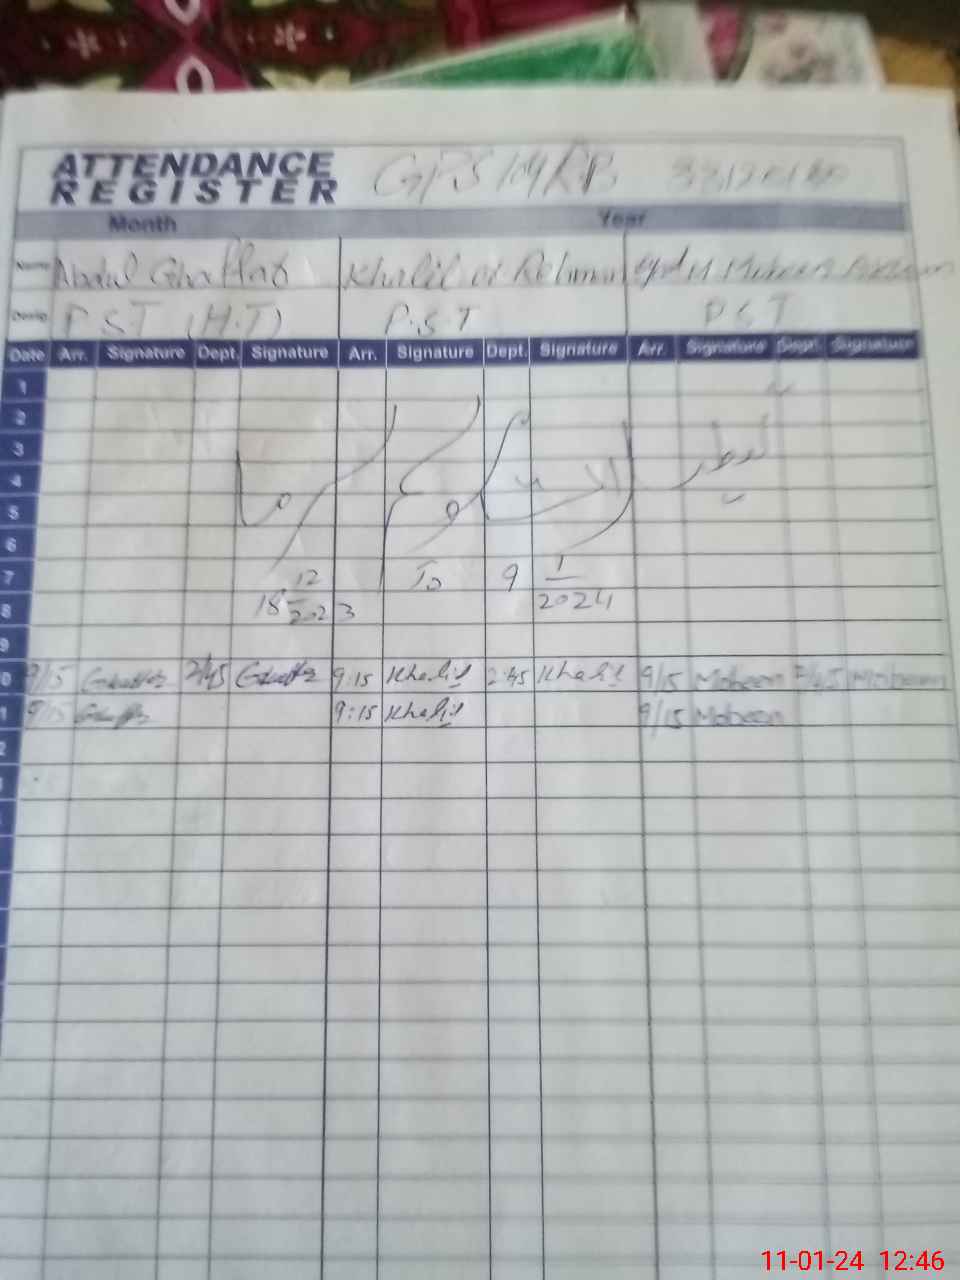 ATTENDANCE
REGISTER
Month Year
Name Abdul Ghaffar Khalil ur Rehman
Desig P.S.T (H.T) P.S.T P.S.T
Date Arr. Signature Dept. Signature Arr. Signature Dept. Signature Arr. Signature Dept. Signature
1
2
3
4
5
6
7
8
تعطیلات موسم سرما
18 12/2023 To 9 1/2024
9
0 9/15 Ghaffar 2/45 Ghaffar 9:15 Khalil 2:45 Khalil 9/15 Mobeen 2/45 Mobeen
1 9/15 Ghaffar 9:15 Khalil 9/15 Mobeen
2
11-01-24 12:46